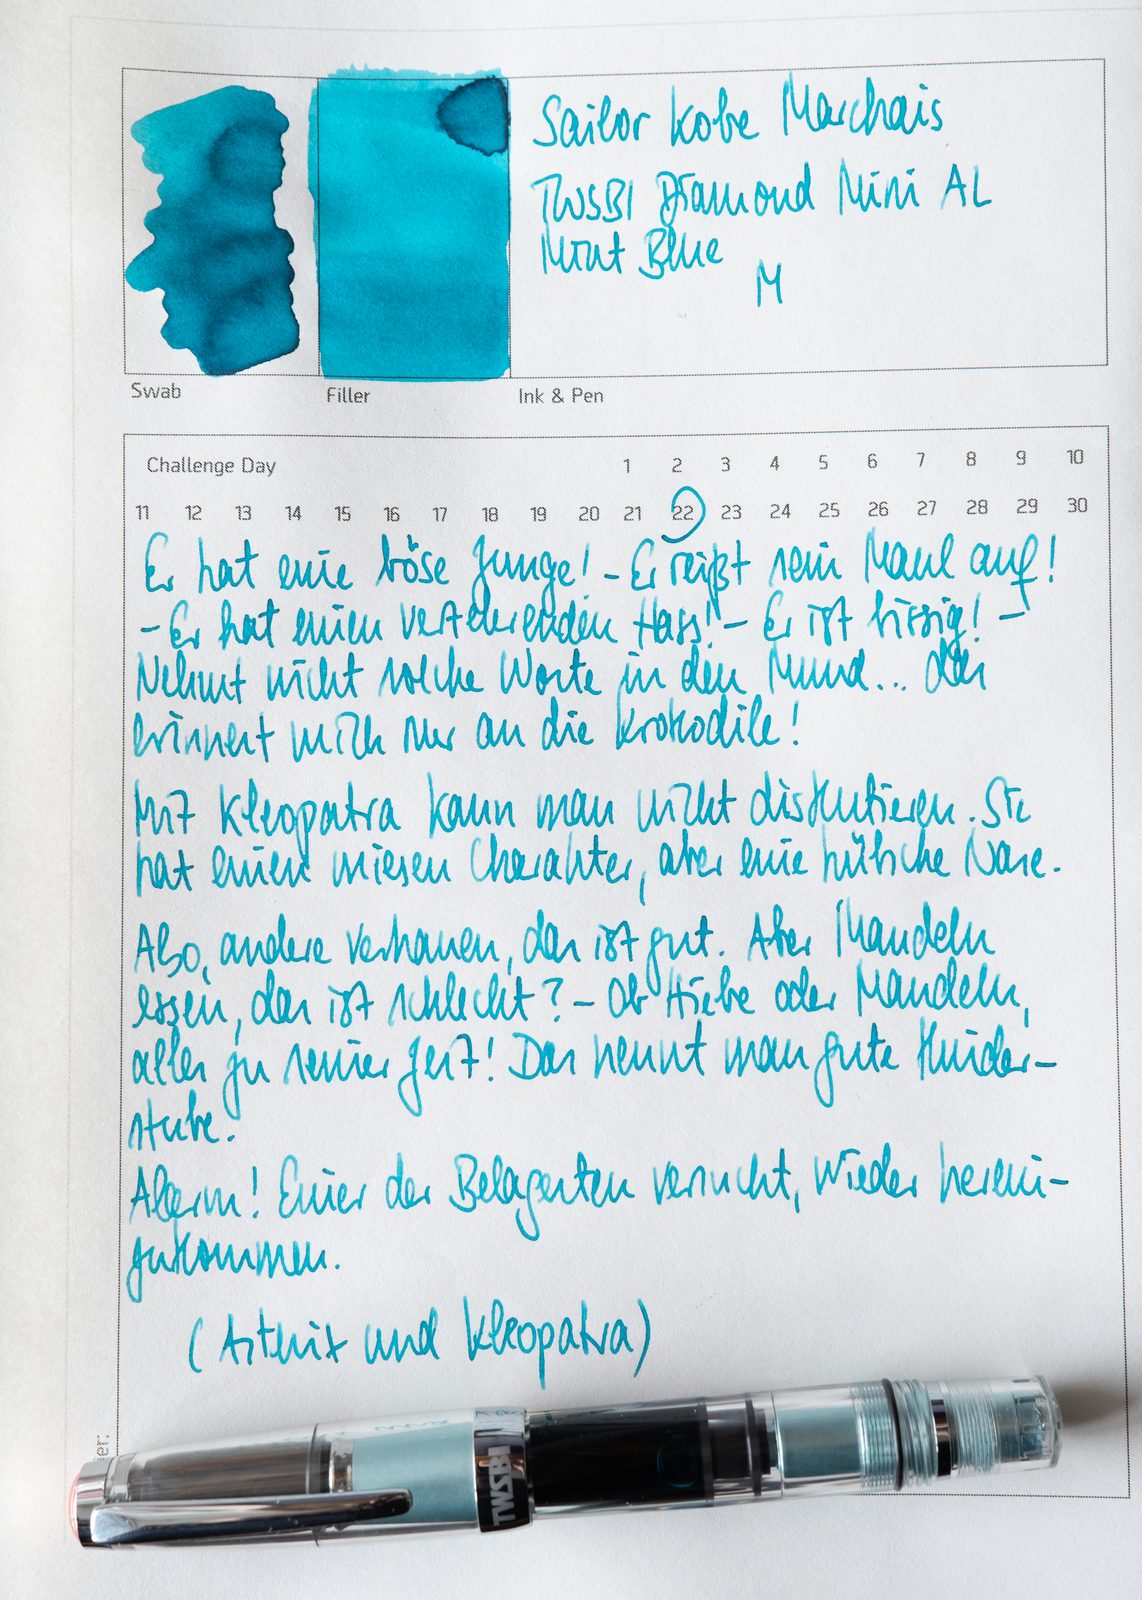 Sailor Kobe Marchais
TWSBI Diamond Mini AL
Mint Blue
M
Swab Filler Ink & Pen
Challenge Day 1 2 3 4 5 6 7 8 9 10
11 12 13 14 15 16 17 18 19 20 21 22 23 24 25 26 27 28 29 30
Er hat eine böse Zunge! – Er reißt sein Maul auf!
– Er hat einen verzehrenden Hass! – Er ist bissig! –
Nehmt nicht solche Worte in den Mund... das
erinnert mich nur an die Krokodile!
Mit Kleopatra kann man nicht diskutieren. Sie
hat einen miesen Charakter, aber eine hübsche Nase.
Also, andere verhauen, das ist gut. Aber Mandeln
essen, das ist schlecht? – Ob Hiebe oder Mandeln,
alles zu seiner Zeit! Das nennt man gute Kinder-
stube.
Alarm! Einer der Belagerten versucht, wieder herein-
zukommen.
(Asterix und Kleopatra)
TWSBI